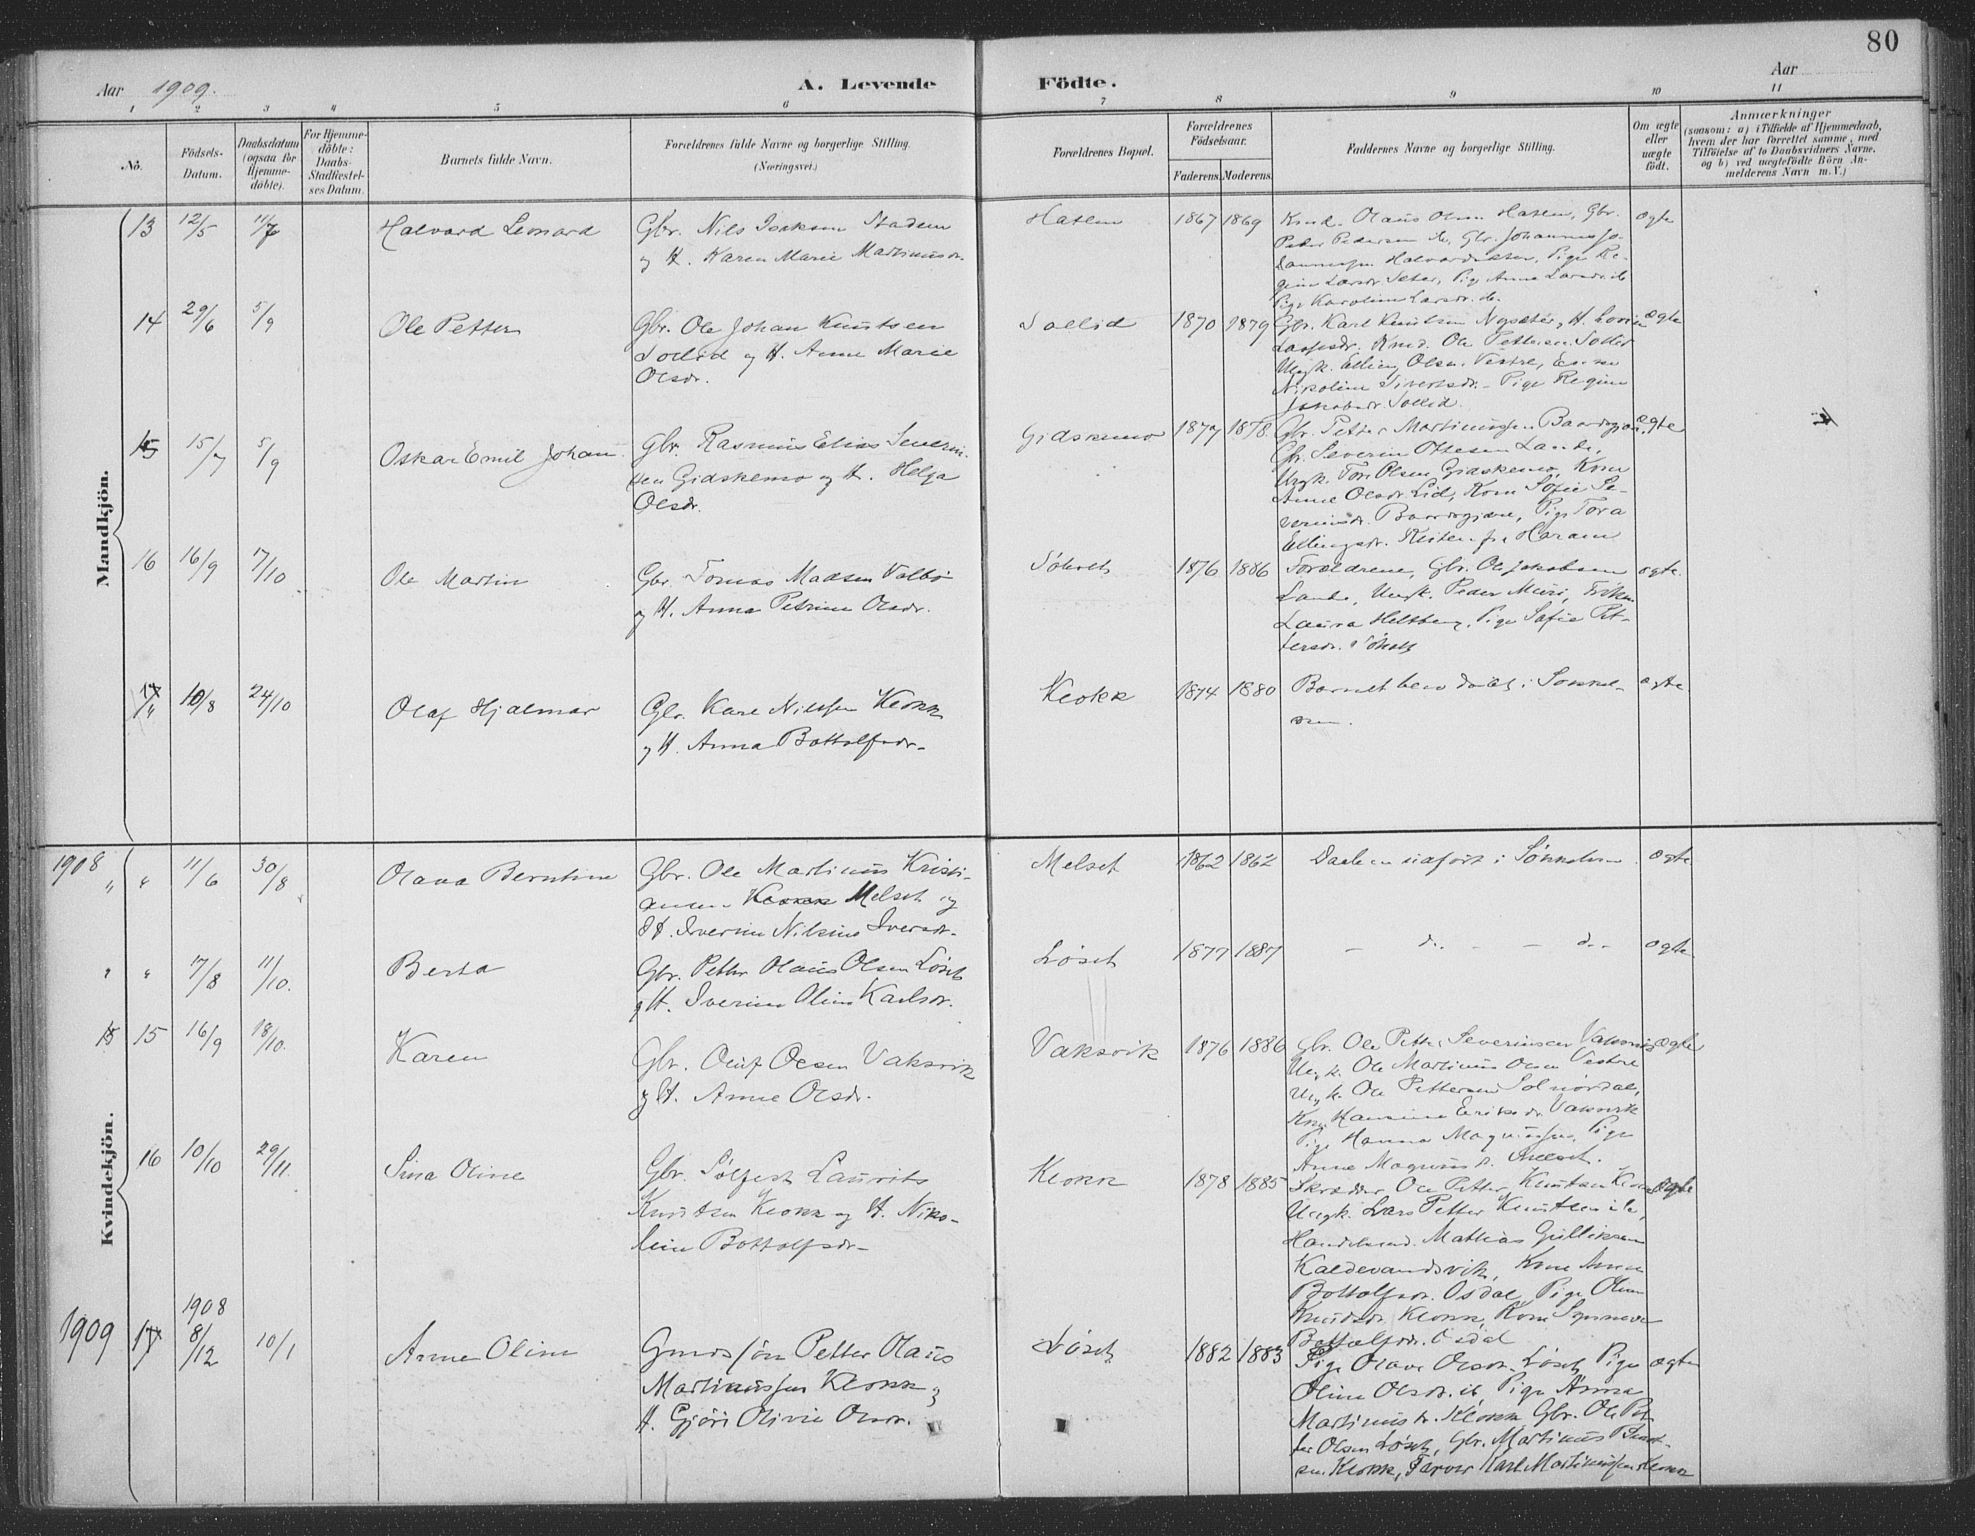 80
Aar 1909.
A. Levende Födte.
Aar
1 2 3 4 5 6 7 8 9 10 11
No.
Födsels-Datum.
Daabsdatum (ogsaa for Hjemme-döbte).
For Hjemme-döbte: Daabs-Stadfæstel-ses Datum.
Barnets fulde Navn.
Forældrenes fulde Navne og borgerlige Stilling. (Næringsvei.)
Forældrenes Bopæl.
Forældrenes Födselsaar.
Faderens. Moderens.
Faddernes Navne og borgerlig Stilling.
Om ægte eller uægte födt.
Anmærkninger
(saasom: a) i Tilfælde af Hjemmedaab, hvem der har forrettet samme, med Tilföielse af to Daabsvidners Navne, og b) ved uægtefödte Börn An-melderens Navn m. V.)
Mandkjön.
13 12/5 11/7 Halvard Leonard
Gbr. Nils Isaksen Stadem
og H. Karen Marie Martinusdr.
Hatlem 1867 1869
Kmd. Olaus Olsen Hatlem, Gbr.
Peder Pedersen ib, Gbr. Johannes Jo-
hannessen Halvardsætter, Pige Re-
gine Larsdr. Seter, Pige Anna Larsdr. ib
Pige Karoline Larsdr. ib.
ægte
14 29/6 5/9 Ole Petter
Gbr. Ole Johan Knutsen
Sollid og H. Anne Marie
Olsdr.
Sollid 1870 1879
Gbr. Karl Knutsen Nysæter, H. Lovise
Kmd. Ole Pettersen Sollid
Ungk. Elling Olsen Vestre,
Nikoline Sivertsdr. Pige Regine
Jakobsdr. Sollid.
ægte
15 15/7 5/9 Oskar Emil Johan
Gbr. Rasmus Elias Severin-
sen Gidskemo og H. Helga
Olsdr.
Gidskemo 1877 1878
Gbr. Petter Martinussen Baardsgjære,
Gbr. Severin Ottesen Lande,
Ungk. Tore Olsen Gidskemo, Kone
Anne Olsdr. Lid, Kone Sofie Se-
verinsdr. Baardsgjære, Pige Tora
Ellingsdr. fra Haram
ægte
16 16/9 17/10 Ole Martin
Gbr. Tomas Madsen Valbö
og H. Anna Petrine Olsdr.
Söholt 1876 1886
Forældrene, Gbr. Ole Jakobsen
Lande, Ungk. Peder Muri, Fröken
Laura Heltberg, Pige Sofie Pet-
tersdr. Söholt
ægte.
17 10/8 24/10 Olaf Hjalmar
Gbr. Karl Nilssen Klokk
og H. Anna Bottolfsdr.
Klokk 1874 1880
Barnet blev döbt i Sökkel-
ven.
ægte
Kvindekjön.
1908
" " 11/6 30/8 Olava Berntine
Gbr. Ole Martinus Kristi-
ansen Klokk Melset og
H. Iverine Nilsine Iversdr.
Melset 1862 1862
Daaben udfört i Sökkelven
ægte
" " 17/8 11/10. Berta
Gbr. Petter Olaus Olsen Löset
og H. Iverine Oline Karlsdr.
Löset 1877 1887
– do – – do –
ægte
15 15 16/9 18/10. Karen
Gbr. Oluf Olsen Vaksvik
og H. Anne Olsdr.
Vaksvik 1876 1886
Gbr. Ole Petter Severinsen Vaksvik
Ungk. Ole Martinus Olsen Vestre
Ungk. Ole Pettersen Solnördal,
Kone Hansine Eriksdr. Vaksvik
Pige Hanna Magnussen, Pige
Anne Magnusdr. Melset.
ægte
16 10/10 29/11. Sina Oline
Gbr. Sölfest Laurits
Knutsen Klokk og H. Niko-
line Bottolfsdr.
Klokk 1878 1885
Skrædder Ole Petter Knutsen Klokk
Ungk. Lars Petter Knutsen ib,
Handelsmd. Mathias Gulliksen
Kaldevandsvik, Kone Anne
Bottolfsdr. Osdal, Pige Oline
Knudsdr. Klokk, Kone Synneve
Bottolfsdr. Osdal
ægte
1909 17 1908 8/12 10/1 Anne Oline
Gmdssön Petter Olaus
Martinussen Klokk og
H. Gjöri Olivie Olsdr.
Löset 1882 1883
Pige Olave Olsdr. Löset, Pige
Oline Olsdr. ib, Pige Anna
Martinusdr. Klokk, Gbr. Ole Pet-
ter Olsen Löset, Gbr. Martinus
Klokk, Farver Karl Martinussen Klokk
ægte